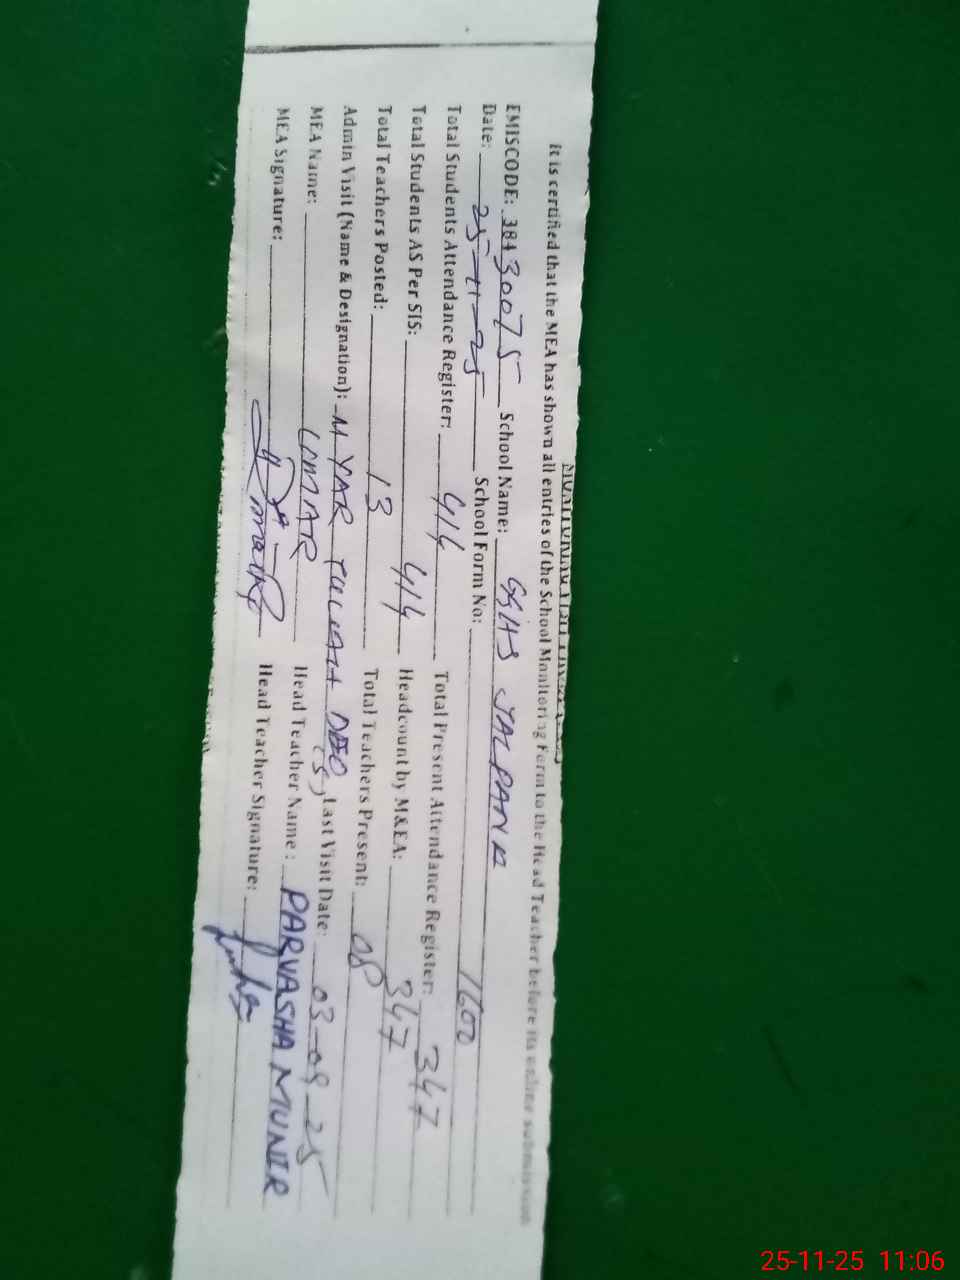 It is certified that the MEA has shown all entries of the School Monitoring Form to the Head Teacher before its online submission
EMISCODE: 38430075 School Name: GGHS JALPANA
Date: 25-11-25 School Form No: 1600
Total Students Attendance Register: 414 Total Present Attendance Register: 347
Total Students AS Per SIS: 414 Headcount by M&EA: 347
Total Teachers Posted: 13 Total Teachers Present: 08
Admin Visit (Name & Designation): M YAR DEO (S) Last Visit Date: 03-09-25
MEA Name: UMAR Head Teacher Name: PARVASHA MUNIR
MEA Signature: Head Teacher Signature:
25-11-25 11:06